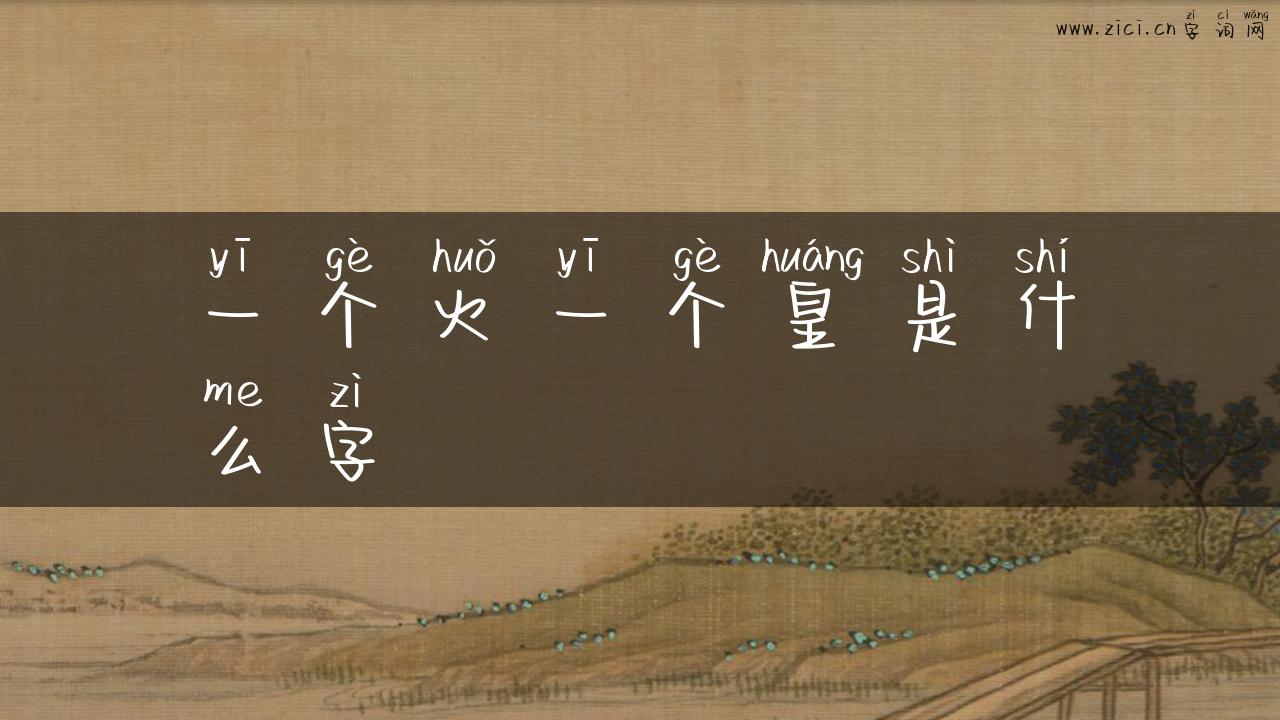 zì cí wǎng
www.zici.cn字词网
yī gè huǒ yī gè huáng shì shí
一个火一个皇是什
me zì
么字